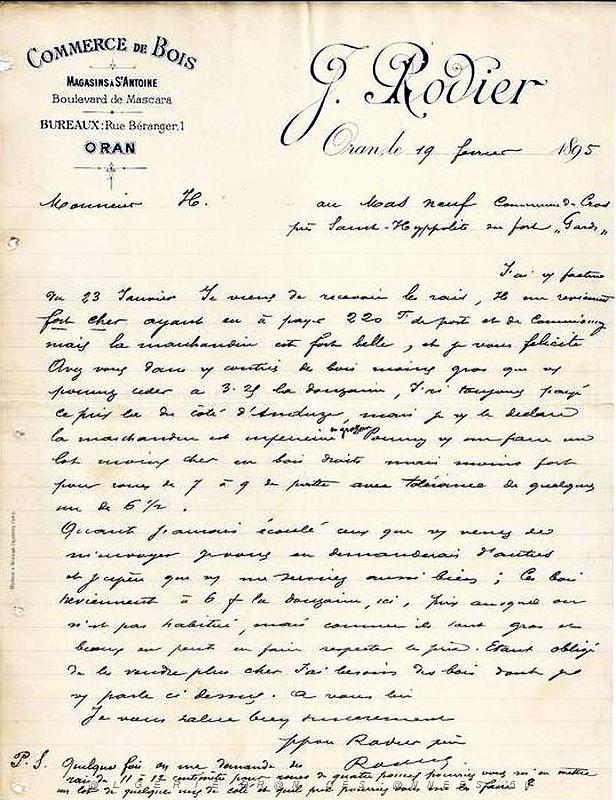 COMMERCE DE BOIS
MAGASINS A ST ANTOINE
Boulevard de Mascara
BUREAUX: Rue Béranger, 1
ORAN
J. Rodier
Oran, le 19 fevrier 1895
Monsieur H. au Mas neuf Commune de Cros
près Saint-Hyppolite du fort "Gard"
J'ai vp facture
du 23 Janvier Je viens de recevoir les rais, Ils me reviennent
fort cher ayant eu à payer 220 F de ports et de
mais la marchandise est fort belle, et je vous félicite
Avez vous dans vos contrées de bois moins gros que vs
pourriez ceder à 3.25 la douzaine, J'ai toujours payé
ce prix là du côté d'Anduze, mais je vs le déclare
la marchandise est inférieure en grosseur Pourriez vs me faire un
lot moins cher en bois droits mais moins fort
pour roues de 7 à 9 de portée avec tolérance de quelques
uns de 6 1/2.
Quand j'aurais écoulé ceux que vs venez de
m'envoyer je vous en demanderais d'autres
et j'espère que vs me servirez aussi bien; Ces bois
reviennent à 6 f la douzaine, ici, prix auquel on
n'est pas habitué, mais comme ils sont gros et
beaux on peut en faire respecter le prix. Etant obligé
de les vendre plus cher J'ai besoin des bois dont je
vs parle ci dessus. A vous lire
Je vous salue bien sincerement
ppon Rodier père
Rodier
P.S. Quelque fois on me demande des
rais de 11 à 12 centimètres pour roues de quatre pouces pourriez vous m'en mettre
un lot de quelques uns de coté et quel prix pourriez vous me les faire ?